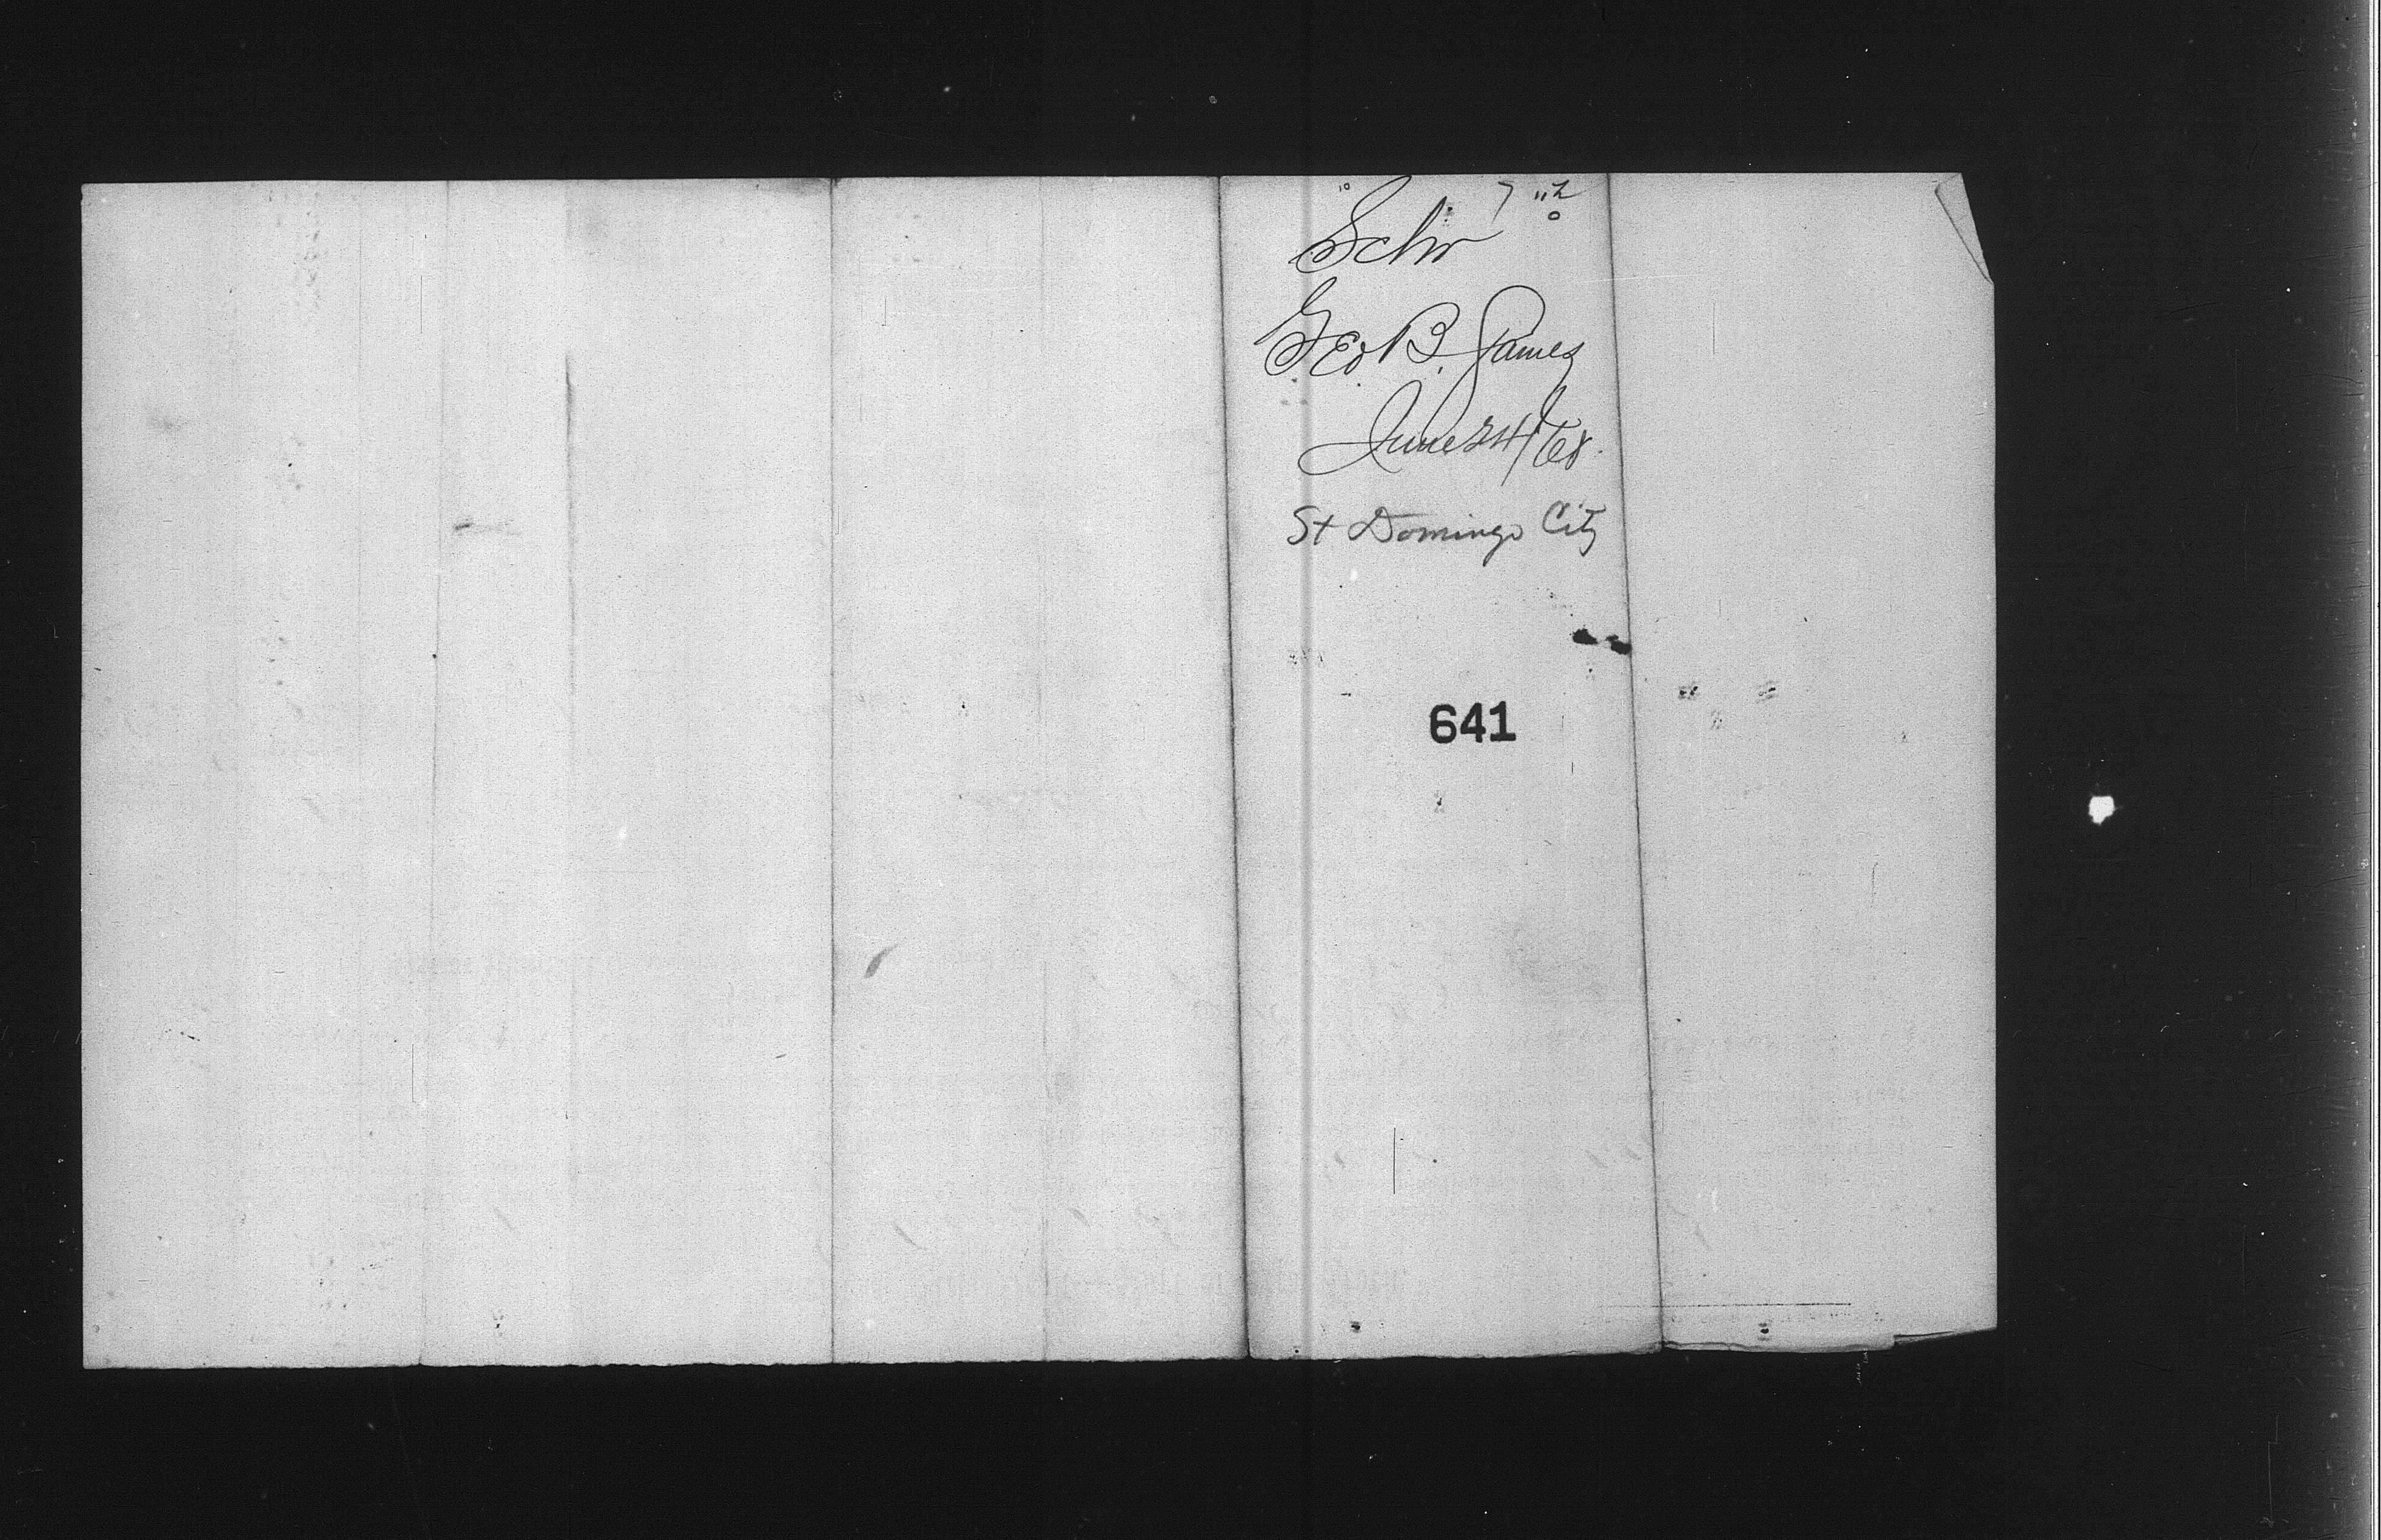 Schr
Geo B. James
June 24/68.
St Domingo City
641